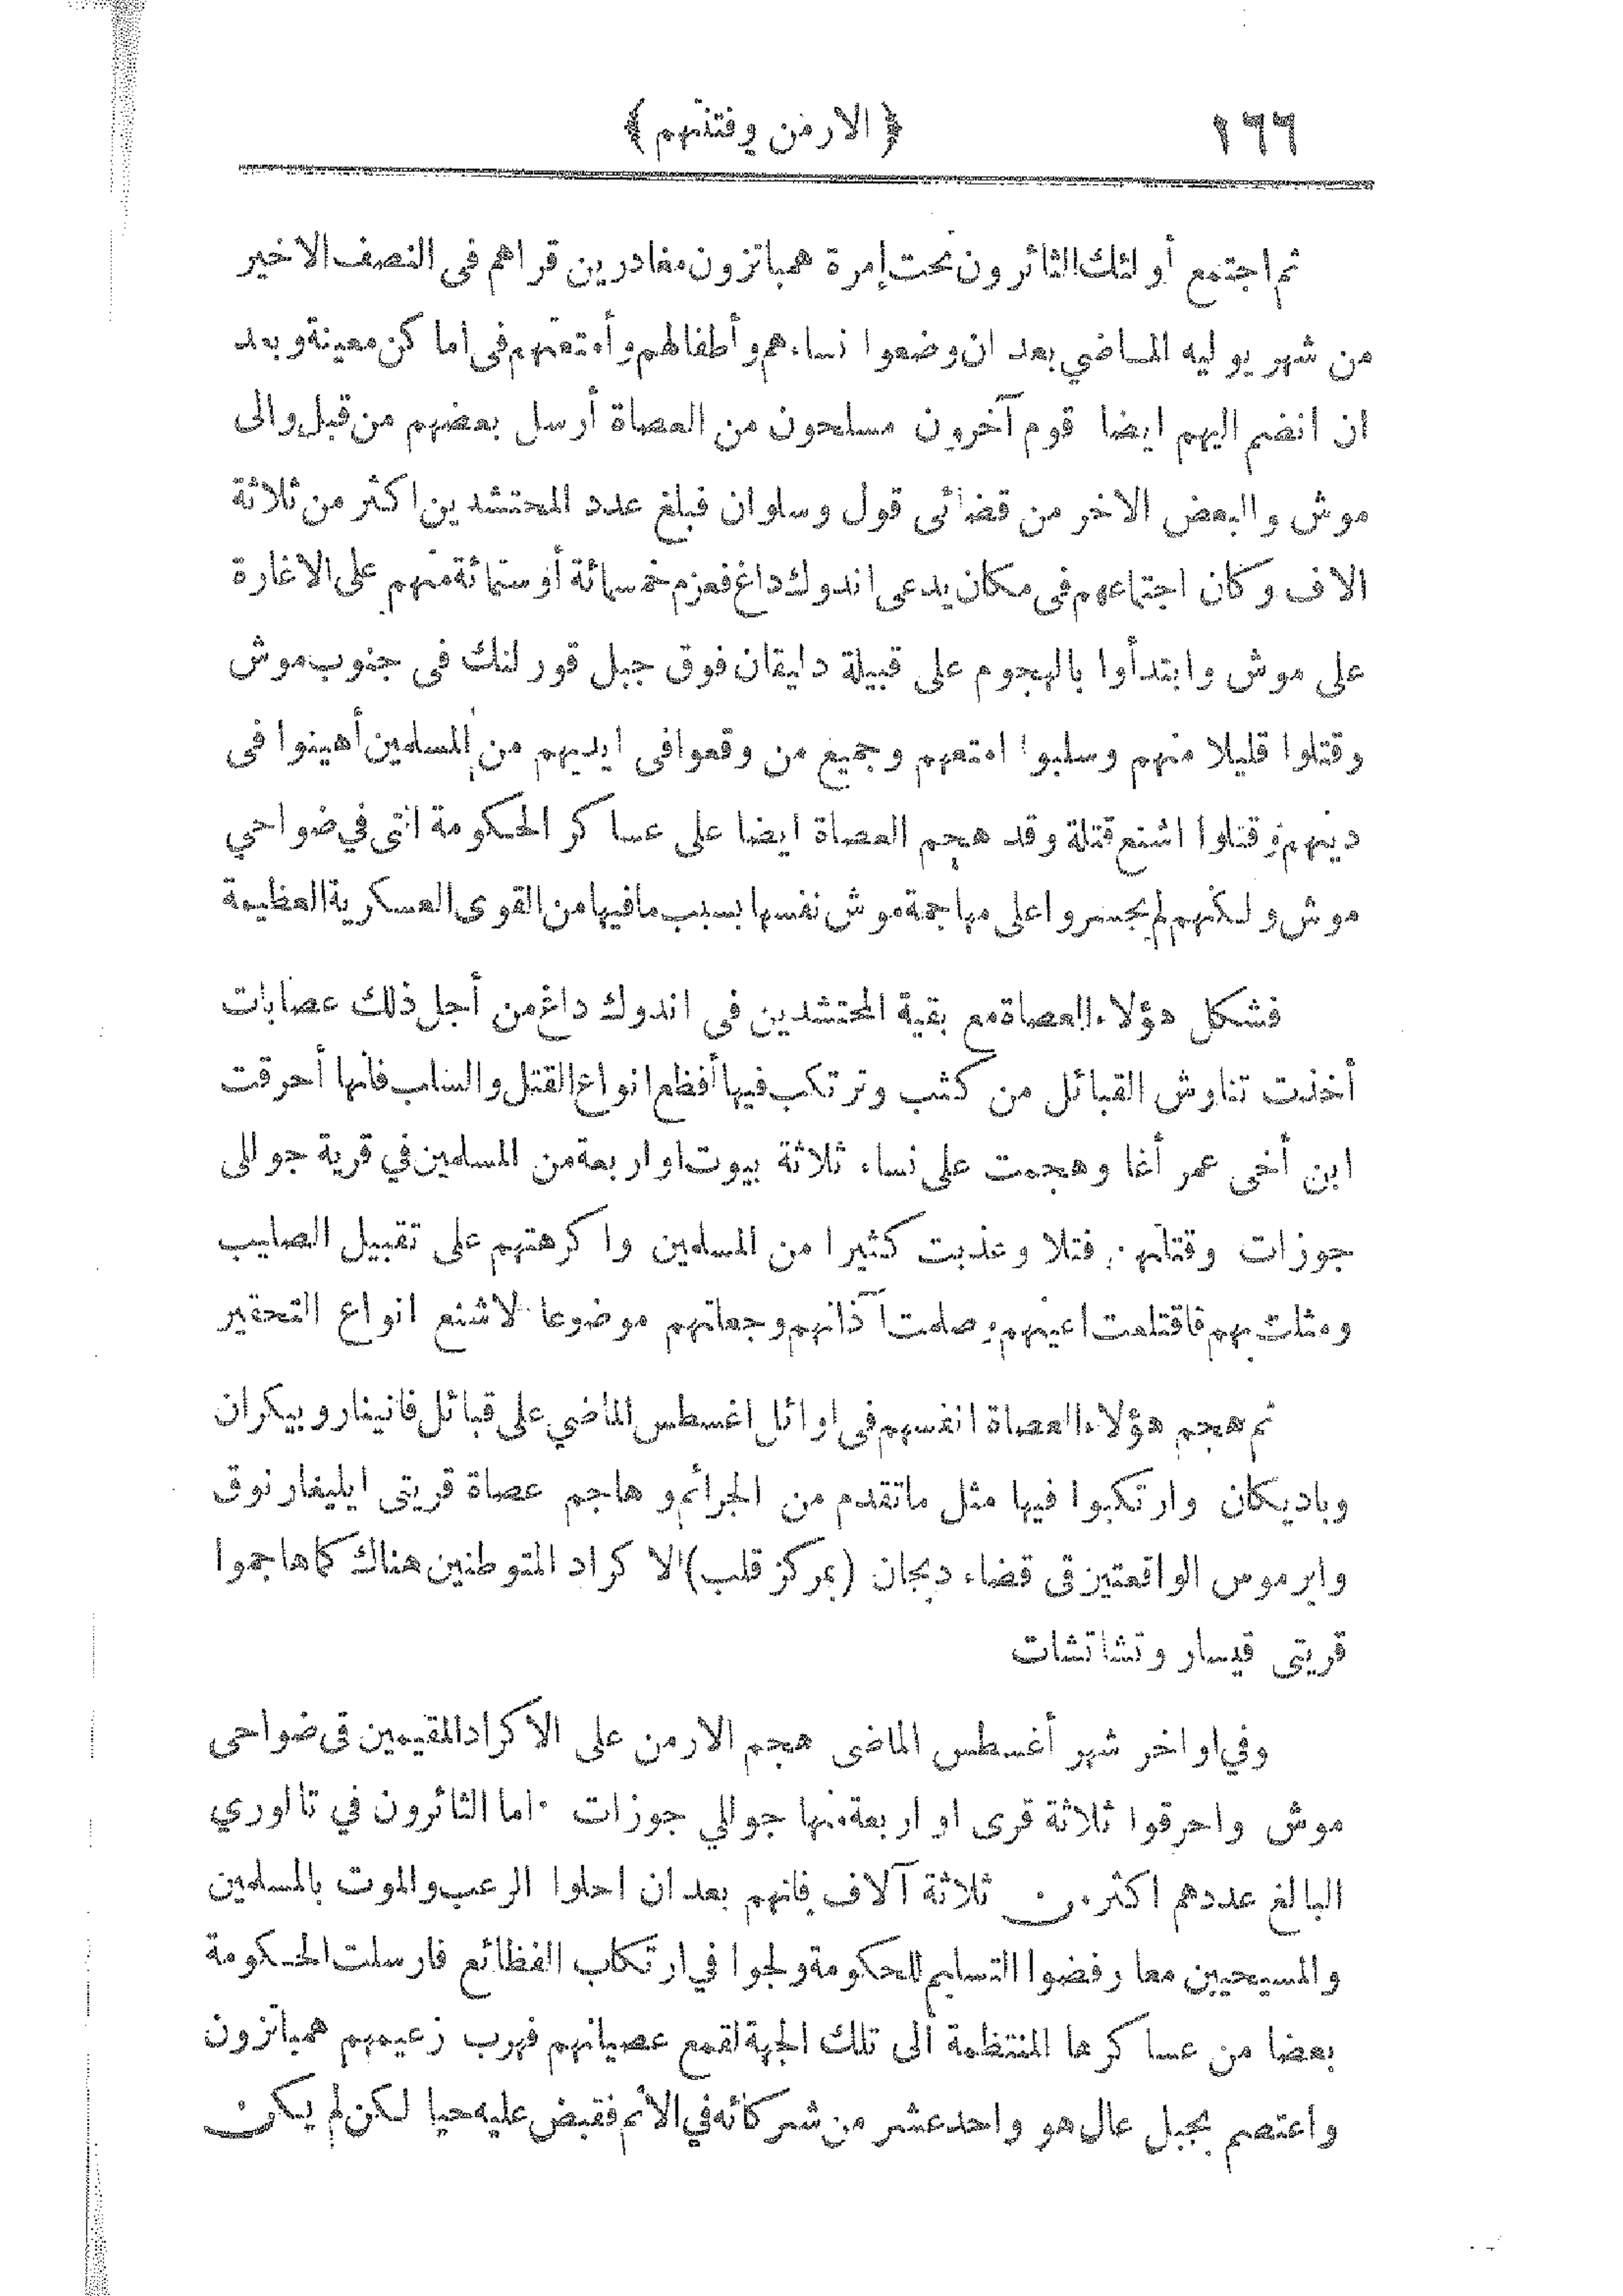 ١٦٦
﴿ الارمن وفتنتهم ﴾
ثم اجتمع أولئك الثائرون تحت إمرة همباتزون مغادرين قراهم فى النصف الاخير
من شهر يوليه الماضي بعد ان وضعوا نساءهم وأطفالهم وأمتعتهم فى اماكن معينة وبعد
ان انضم اليهم ايضا قوم آخرون مسلحون من العصاة أرسل بعضهم من قبل والى
موش والبعض الاخر من قضائى قول وسلوان فبلغ عدد المحتشدين اكثر من ثلاثة
الاف وكان اجتماعهم فى مكان يدعى اندوك داغ فعزم خمسمائة أو ستمائة منهم على الاغارة
على موش وابتدأوا بالهجوم على قبيلة دليقان فوق جبل قورلنك فى جنوب موش
وقتلوا قليلا منهم وسلبوا امتعهم وجميع من وقعوا فى ايديهم من المسلمين أهينوا فى
دينهم وقتلوا اشنع قتلة وقد هجم العصاة ايضا على عساكر الحكومة التى في ضواحي
موش ولكنهم لم يجسروا على مهاجمة موش نفسها بسبب ما فيها من القوى العسكرية العظيمة
فشكل هؤلاء العصاة مع بقية المحتشدين فى اندوك داغ من أجل ذلك عصابات
أخذت تناوش القبائل من كثب وترتكب فيها أفظع انواع القتل والسلب فانها أحرقت
ابن أخى عمر أغا وهجمت على نساء ثلاثة بيوت او اربعة من المسلمين في قرية جوالى
جوزات وقتلتهن قتلا وعذبت كثيرا من المسلمين واكرهتهم على تقبيل الصليب
ومثلت بهم فاقتلعت اعينهم وصلمت آذانهم وجعلتهم موضوعا لاشنع انواع التحقير
ثم هجم هؤلاء العصاة انفسهم فى اوائل اغسطس الماضي على قبائل فانينار وبيكران
وباديكان وارتكبوا فيها مثل ما تقدم من الجرائم وهاجم عصاة قريتى ايليغارنوق
وايرموس الواقعتين فى قضاء ديجان (بمركز قلب) الاكراد المتوطنين هناك كما هاجموا
قريتى قيسار وتشاتشات
وفي اواخر شهر أغسطس الماضى هجم الارمن على الاكراد المقيمين فى ضواحى
موش واحرقوا ثلاثة قرى او اربعة منها جوالي جوزات ٠ اما الثائرون في تالوري
البالغ عددهم اكثر من ثلاثة آلاف فانهم بعد ان احلوا الرعب والموت بالمسلمين
والمسيحيين معا رفضوا التسليم للحكومة ولجوا في ارتكاب الفظائع فارسلت الحكومة
بعضا من عساكرها المنتظمة الى تلك الجهة لقمع عصيانهم فهرب زعيمهم همباتزون
واعتصم بجبل عال هو واحد عشر من شركائه في الاثم فقبض عليه حيا لكن لم يكن